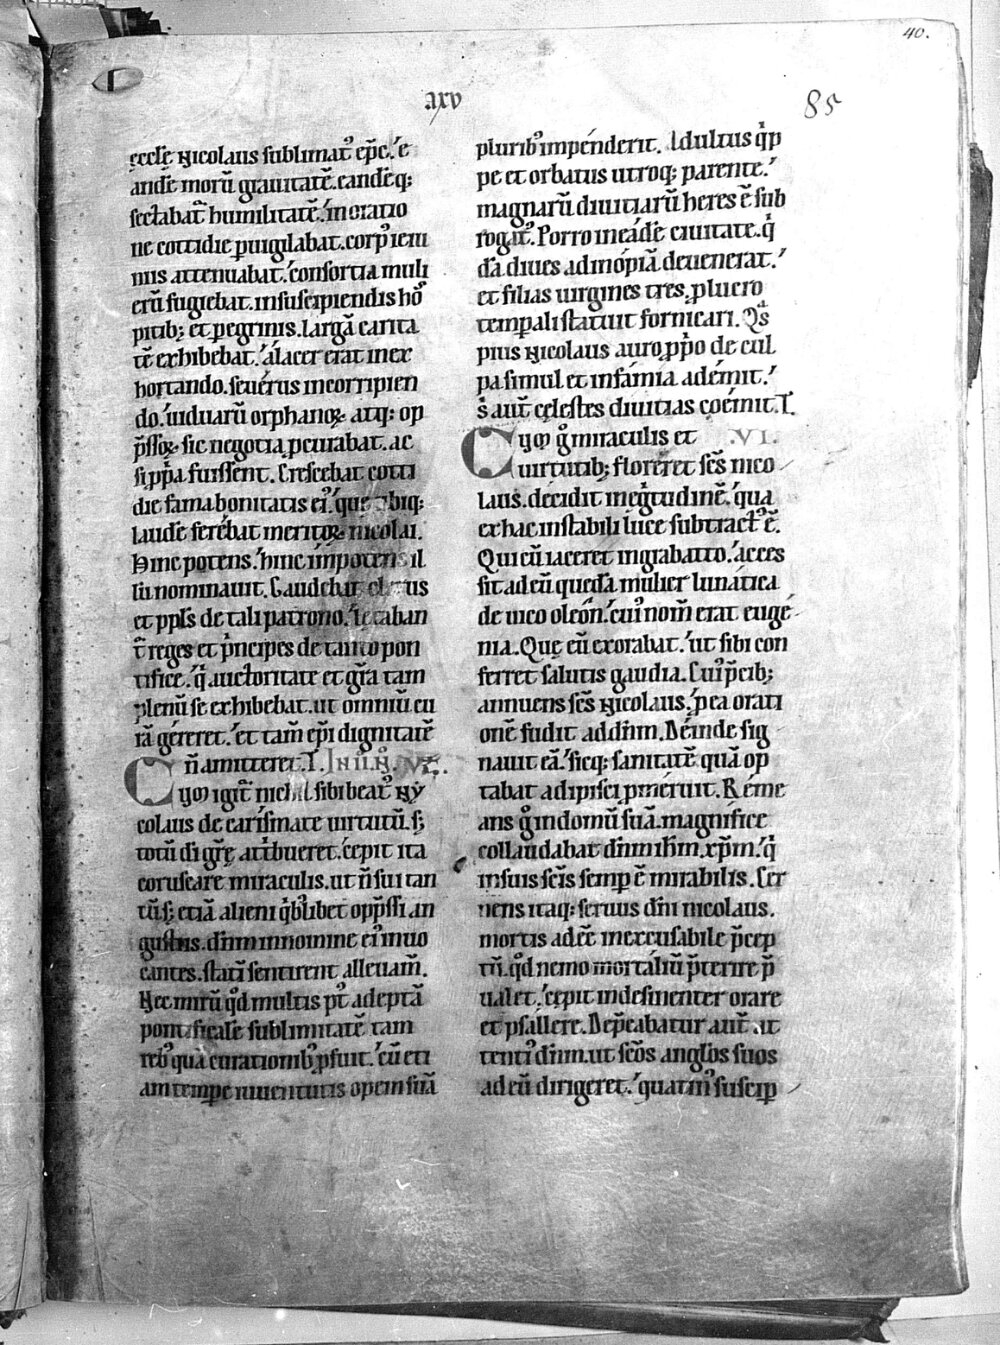 40.
axv
85
ęccle̅ Nicolaus sublimat᷒ ep̅c.᷒ e
ande̅ moru̅ grauitate̅. eande̅q;
sectabat᷑ humilitate̅.᷒ in oratio
ne cottidie ꝑuigilabat. corp᷒ ieiu
niis attenuabat.᷒ consortia muli
eru̅ fugiebat. in suscipiendis ho̅
pitib; et ꝑegrinis. larga̅ carita
te̅ exhibebat.᷒ alacer erat in ex
hortando. seuerus in corripien
do.᷒ uiduaru̅ orphanoꝝ atq; op
p̅ssoꝝ sic negotia ꝓcurabat. ac
si ꝓp̅a fuissent. Crescebat cotti
die fama bonitatis ei᷒.᷒ que ubiq;
laude̅ ferebat meritoꝝ nicolai.
Hinc potens.᷒ hinc impotens il
lu̅ nominauit. Gaudebat clerus
et ppl̅s de tali patrono.᷒ letaban
t᷑ reges et p̍ncipes de tanto pon
tifice.᷒ q̍ auctoritate et gr̅a tam
plenu̅ se exhibebat. ut omniu̅ cu
ra̅ gereret.᷒ et tam̅ ep̅i dignitate̅
n̅ amitteret. T.
Cum igit᷑ nichil sibi beat᷒ Ny
colaus de carismate uirtutu̅. s;
totu̅ di̅ gr̅ę att̍bueret.᷒ cepit ita
coruscare miraculis. ut n̅ sui tan
tu̅. s; etia̅ alieni q̍b᷒libet opp̅ssi an
gustiis. dn̅m in nomine ei᷒ inuo
cantes. stati̅ sentirent alleuam̅.
Nec miru̅ qd̅ multis p᷒t adepta̅
pontificale̅ sublimitate̅ tam
reb᷒ qua̅ curationib᷒ ꝓfuit.᷒ cu̅ eti
am tempe iuuentutis opem sua̅
plurib᷒ impenderit. Adultus q̍p
pe et orbatus utroq; parente.᷒
magnaru̅ diuitiaru̅ heres e̅ sub
rogat᷒. Porro in eade̅ ciuitate. q̍
da̅ diues ad inopia̅ deuenerat.᷒
et filias uirgines tres, ꝑ lucro
temꝑali statuit fornicari. Qs̅
pius Nicolaus auro ꝓp̍o de cul
pa simul et infamia ademit.᷒
s̍ aut̅ cęlestes diuitias coemit. T.
VI.
Cum g̍ miraculis et
uirtutib; floreret sc̅s nico
laus. decidit in egritudine̅.᷒ qua
ex hac instabili luce subtract᷒ e̅.
Qui cu̅ iaceret in grabatto.᷒ acces
sit ad eu̅ queda̅ mulier lunatica
de uico oleon̅.᷒ cui᷒ nom̅ erat euge
nia. Quę eu̅ exorabat.᷒ ut sibi con
ferret salutis gaudia. Cui᷒ p̅cib;
annuens sc̅s Nicolaus.᷒ p̍ ea orati
one̅ fudit ad dn̅m. Deinde sig
nauit ea̅.᷒ sicq; sanitate̅ qua̅ op
tabat adipisci ꝓmeruit. Reme
ans g̍ in domu̅ sua̅. magnifice
collaudabat dn̅m ih̅m xp̅m.᷒ q̍
in suis sc̅is semp e̅ mirabilis. Cer
nens itaq; seruus dn̅i nicolaus.
mortis adee̅ inexcusabile p̅cep
tu̅. qd̅ nemo mortaliu̅ p̅terire p̅
ualet.᷒ cępit indesinenter orare
et psallere. Dep̅cabatur aut̅ at
tenti᷒ dn̅m. ut sc̅os anglos suos
ad eu̅ dirigeret.᷒ quatin᷒ suscip